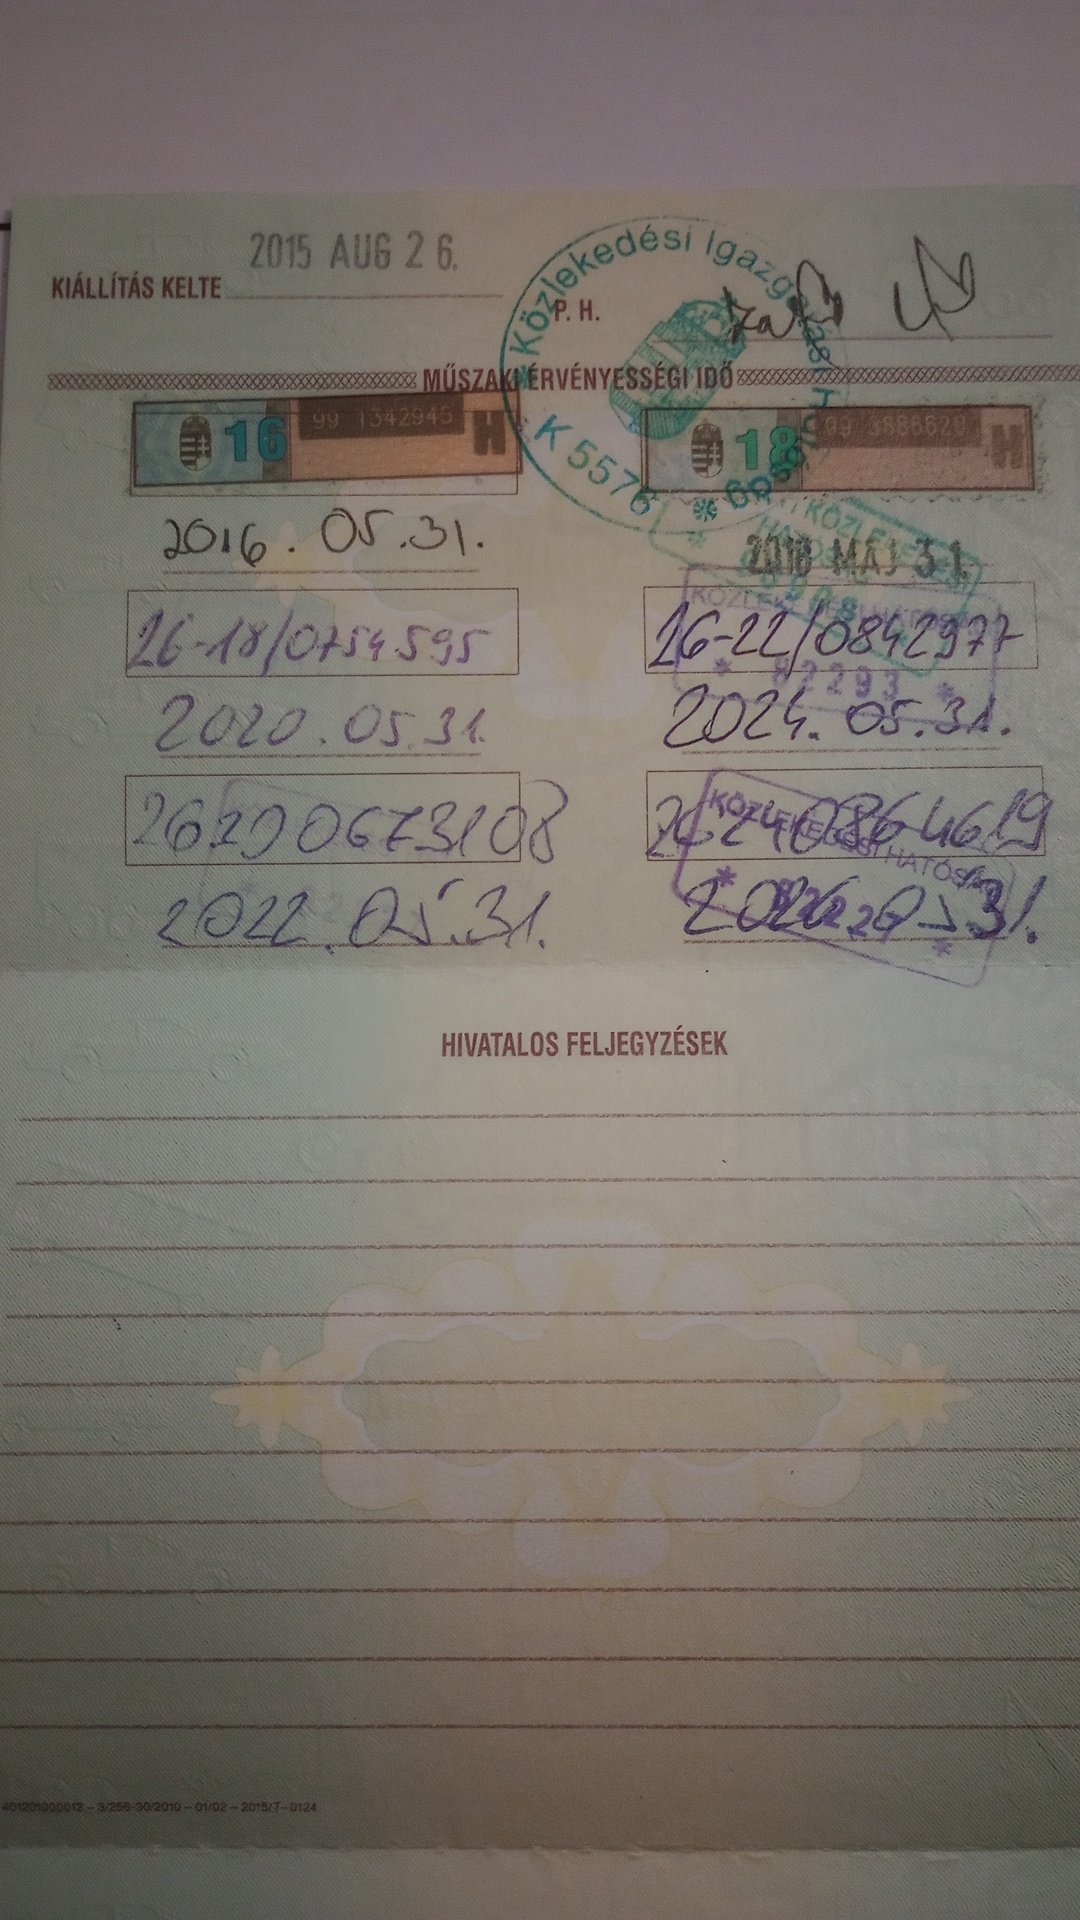 2015 AUG 26.
KIÁLLÍTÁS KELTE
P. H.
Közlekedési Igazgatási Hatóság
K 5576
MŰSZAKI ÉRVÉNYESSÉGI IDŐ
16 99 1342945 H
18 99 3886620 H
2016. 05.31.
2018 MÁJ 31.
26-18/0754595
26-22/0842977
KÖZLEKEDÉSI HATÓSÁG
* 82293 *
2020. 05.31.
2024. 05.31.
2620 0673108
KÖZLEKEDÉSI HATÓSÁG
2022. 05.31.
2026. 05.31.
HIVATALOS FELJEGYZÉSEK
401201000012 – 3/256-30/2010 – 01/02 – 2015/T–0124